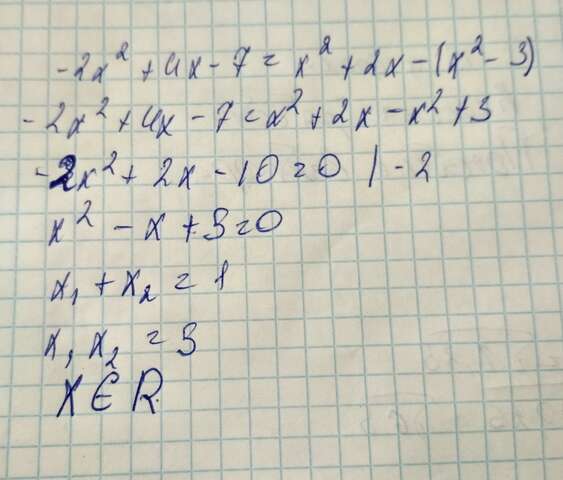 -2x² + 4x - 7 = x² + 2x - (x² - 3)
-2x² + 4x - 7 = x² + 2x - x² + 3
-2x² + 2x - 10 = 0 | -2
x² - x + 5 = 0
x₁ + x₂ = 1
x₁ x₂ = 5
X ∈ R